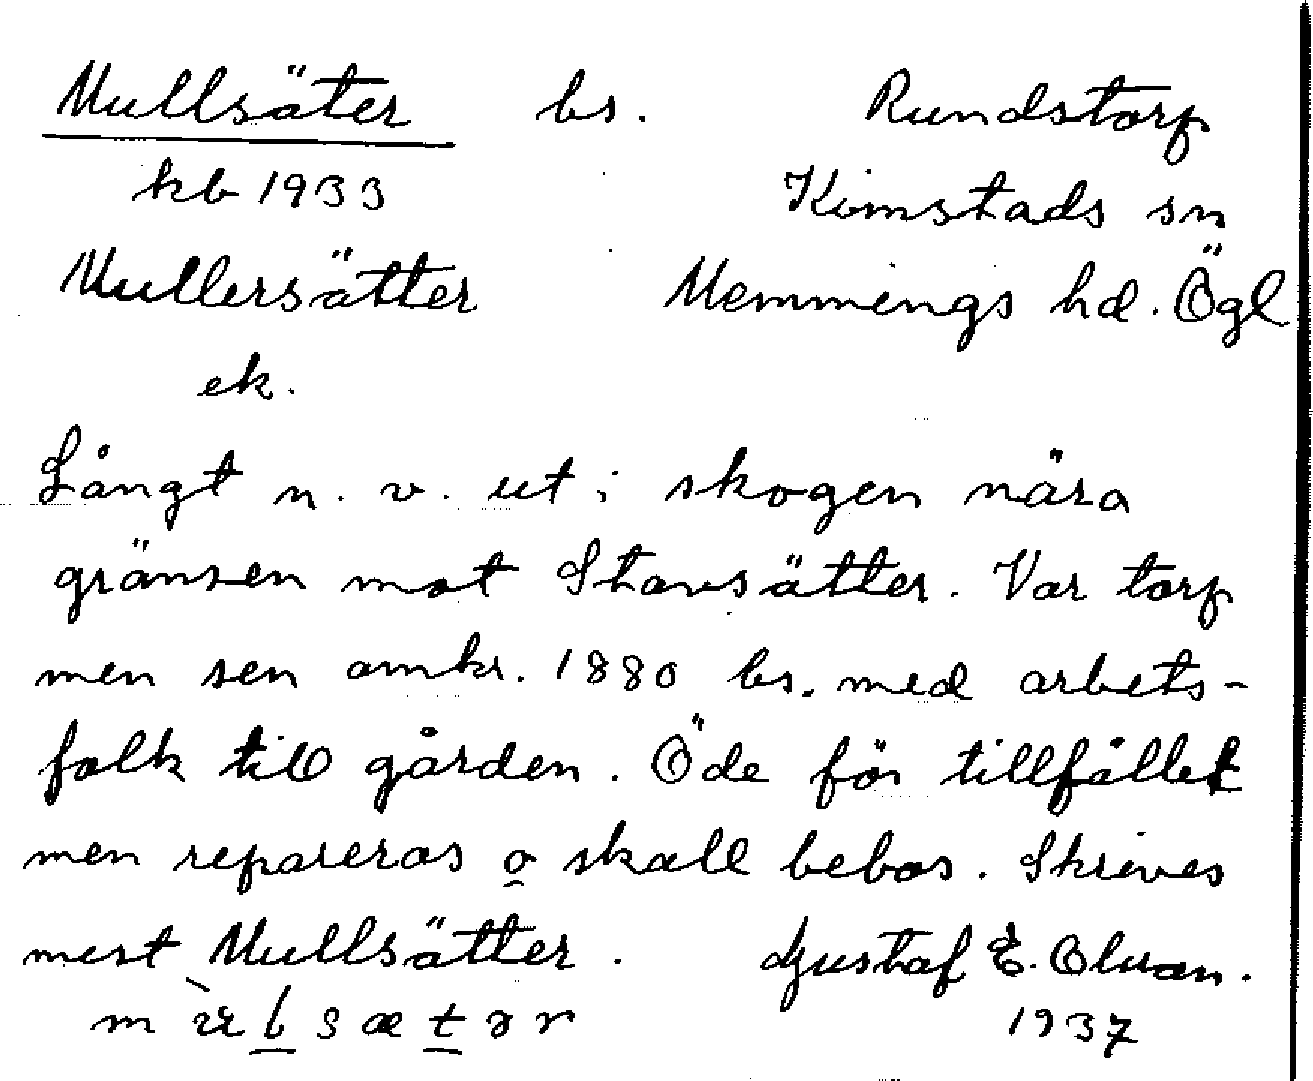 Mullsäter bs. Rundstorp
kb 1933 Kimstads sn
Mullersätter Memmings hd. Ögl
ek.
Långt n. v. ut i skogen nära
gränsen mot Stavsätter. Var torp
men sen omkr. 1880 bs. med arbets-
folk till gården. Öde för tillfället
men repareras o skall bebos. Skrives
mest Mullsätter. Gustaf E.
m s æ t ə r 1937